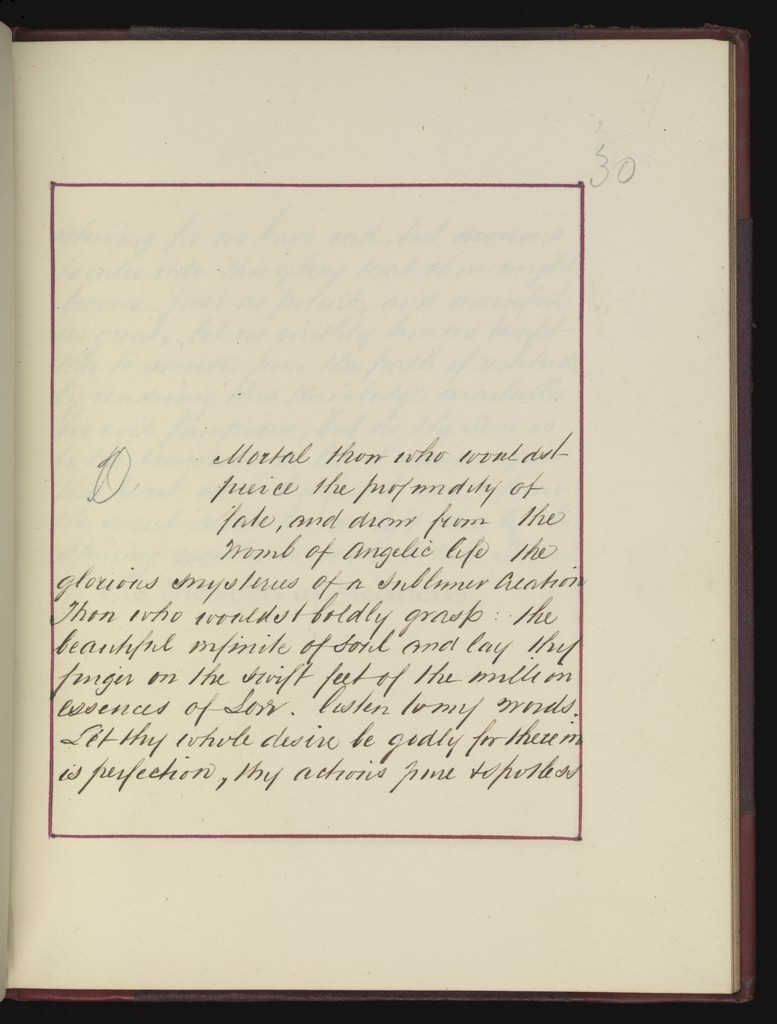 30
O Mortal thou who wouldst
pierce the profundity of
fate, and draw from the
womb of angelic life the
glorious mysteries of a sublimer Creation
Thou who wouldst boldly grasp the
beautiful infinite of soul and lay thy
finger on the swift feet of the million
essences of Love. listen to my words.
Let thy whole desire be godly for therein
is perfection, thy actions pure & spotless